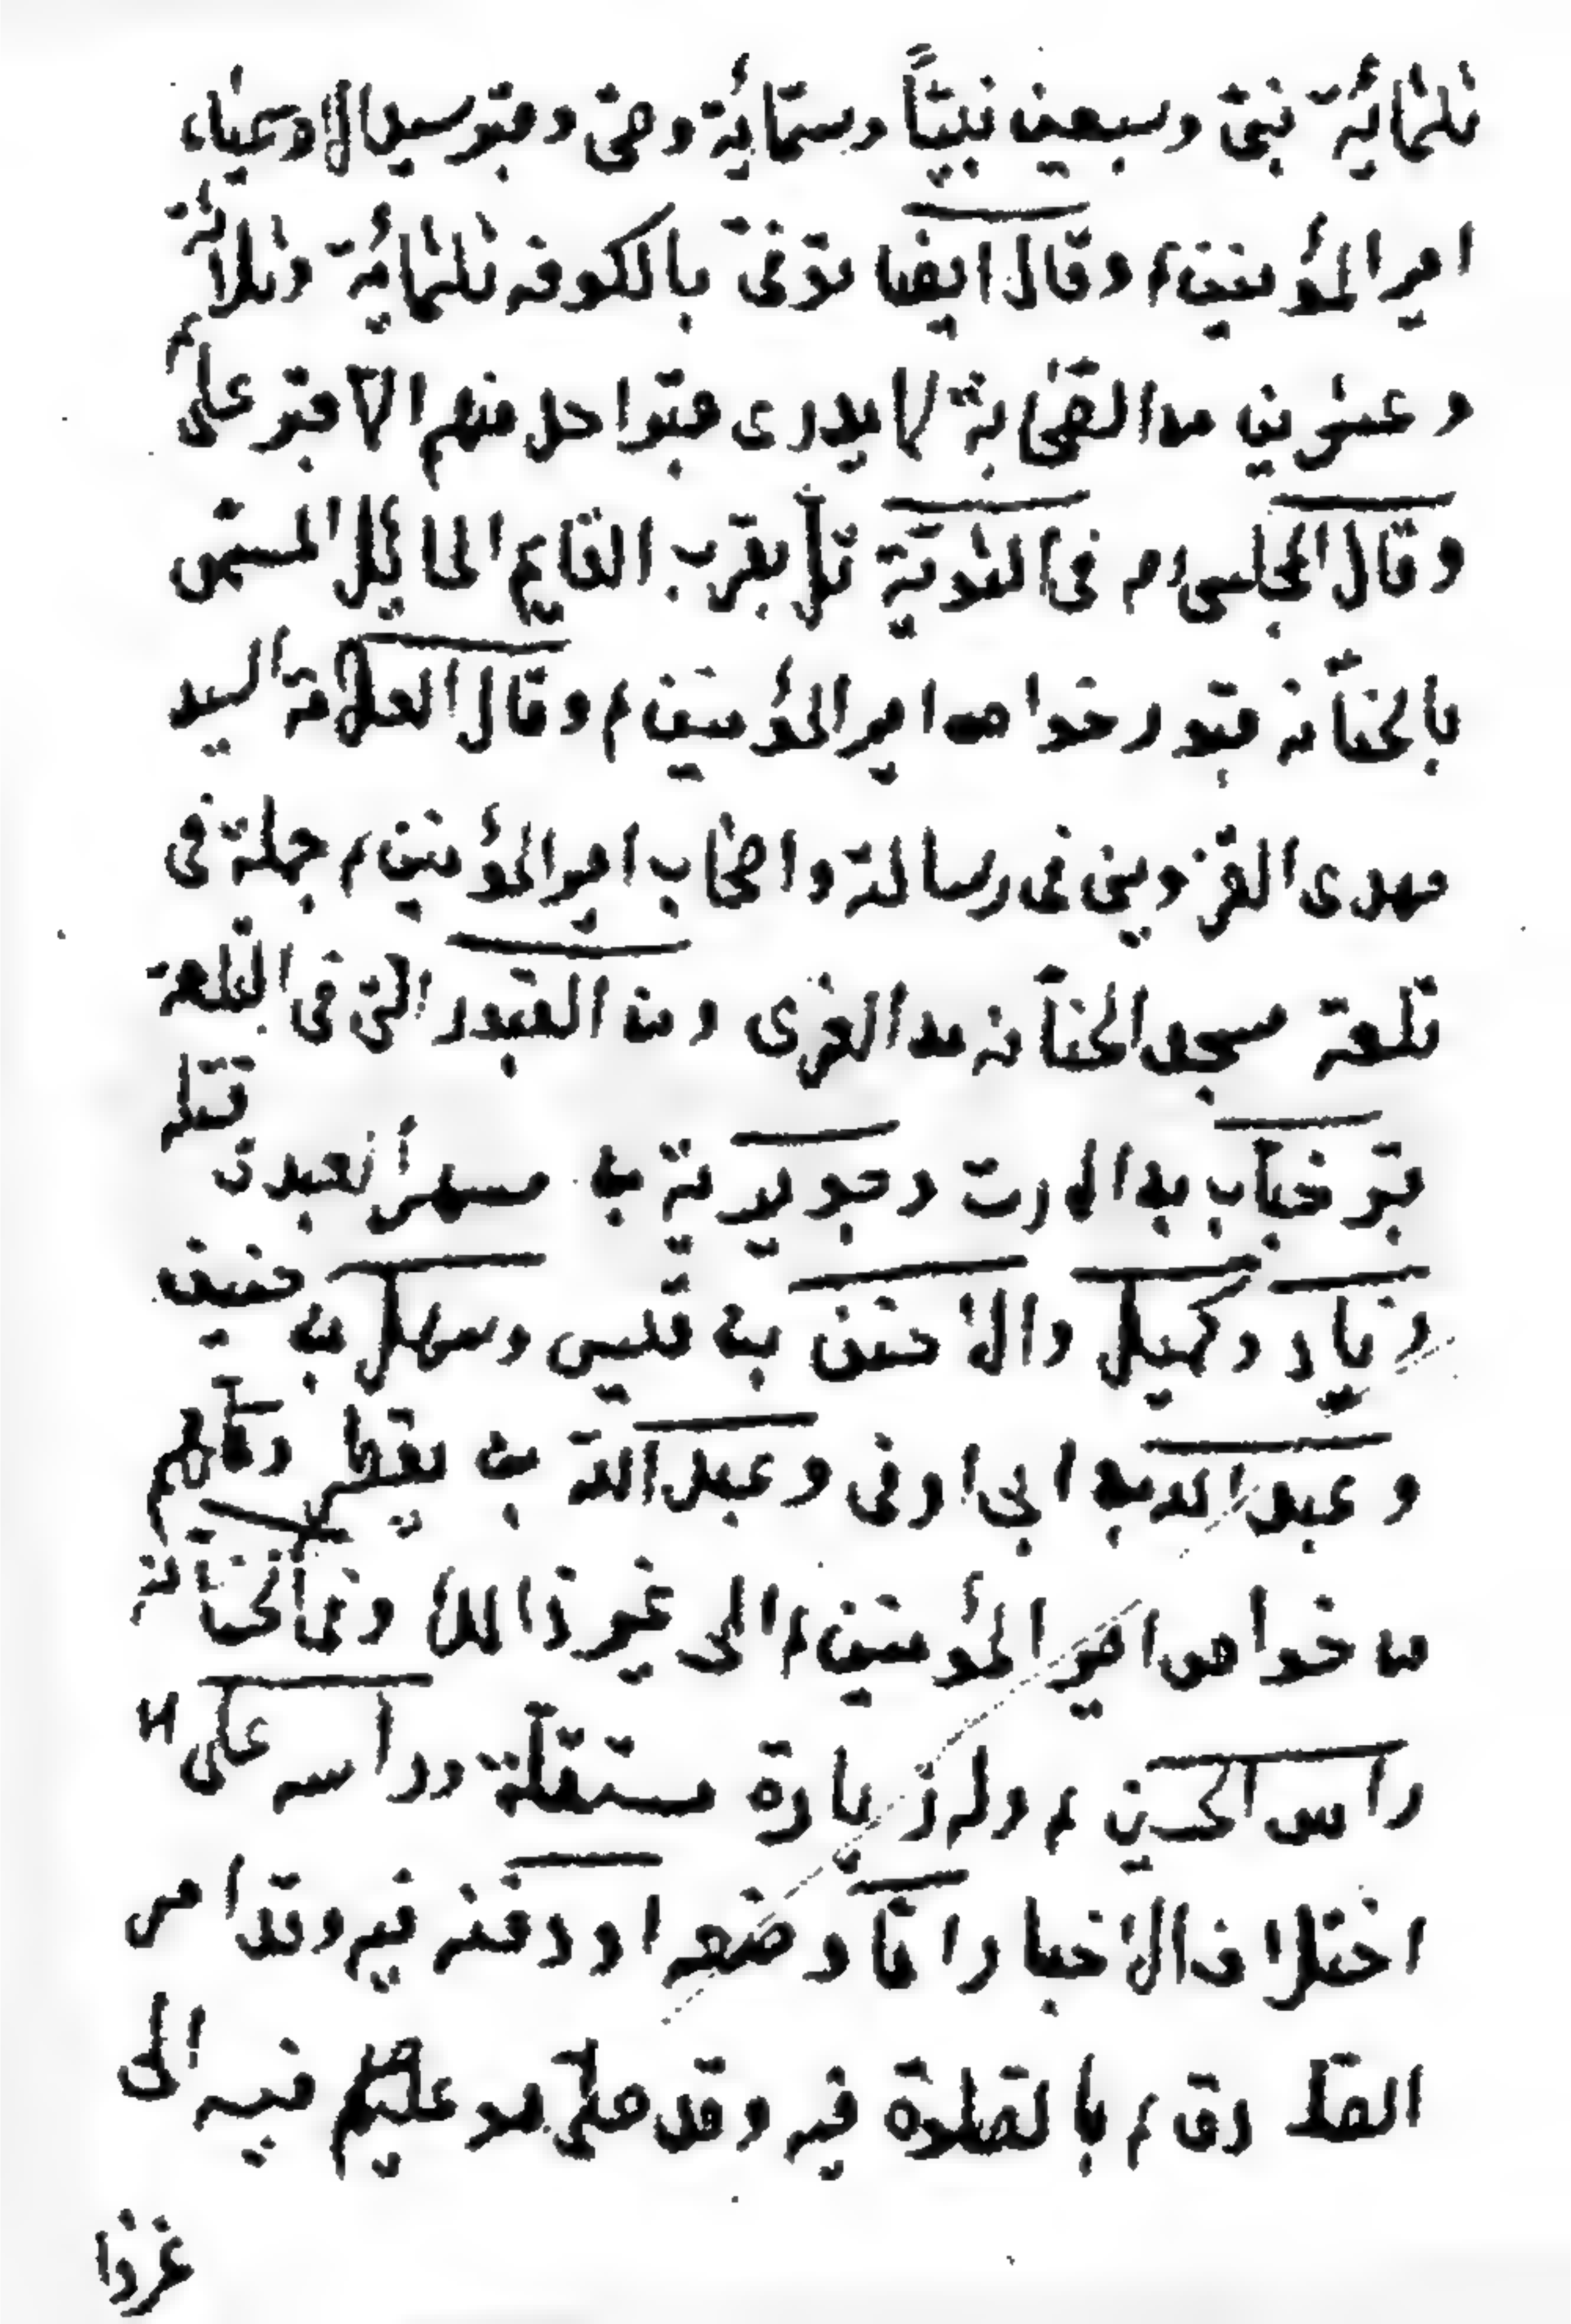 ثلثمائة نبى وسبعين نبيّاً وستمائة وصى وقبر سيد الاوصياء
امير المؤمنين ء وقال ايضا توفى بالكوفه ثلثمائة وثلاثة
وعشرين من الصحابة لا يدرى قبر احد منهم الا قبر على م
وقال المجلسى ره فى الثوية تل بقرب القايم المائل المسمى
بالحنانه قبور خواص امير المؤمنين م وقال العلامة السيد
مهدى القزوينى فى رسالة واصحاب امير المؤمنين م جملة فى
تلعة مسجد الحنانه من الغرى ومن القبور التى فى التلعة
قبر خباب بن الارت وجويرية بن مسهر العبدى قتله
زياد وكميل والاحنف بن قيس وسهل بن حنيف
وعبد الله بن ابى اوفى وعبد الله بن يقطر وكلهم
من خواص امير المؤمنين م الى غير ذالك وفى الحنانة
راس الحسين م وله زيارة مستقلة ورد اسه على
اختلاف الاخبار اما وضعه او دفنه فيه وقد امر
الصادق م بالصلوة فيه وقد صلى هو عليهم فيه الى
غزوا